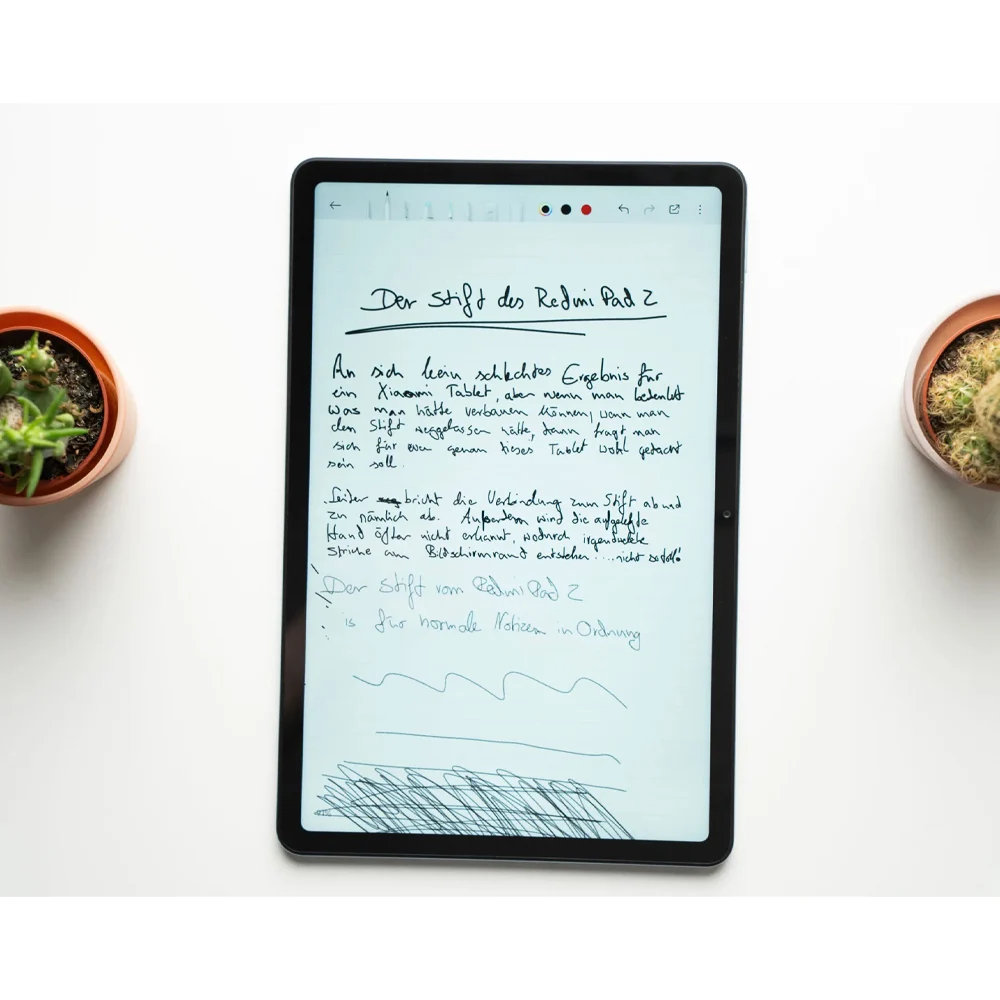 Der Stift des Redmi Pad 2
An sich kein schlechtes Ergebnis für
ein Xiaomi Tablet, aber wenn man bedenkt
was man hätte verbauen können, wenn man
den Stift weggelassen hätte, dann fragt man
sich für wen genau dieses Tablet wohl gedacht
sein soll.
Leider bricht die Verbindung zum Stift ab und
zu nämlich ab. Außerdem wird die aufgelegte
Hand öfter nicht erkannt, wodurch irgendwelche
Striche am Bildschirmrand entstehen....nicht so toll!
Der Stift vom Redmi Pad 2
is für normale Notizen in Ordnung